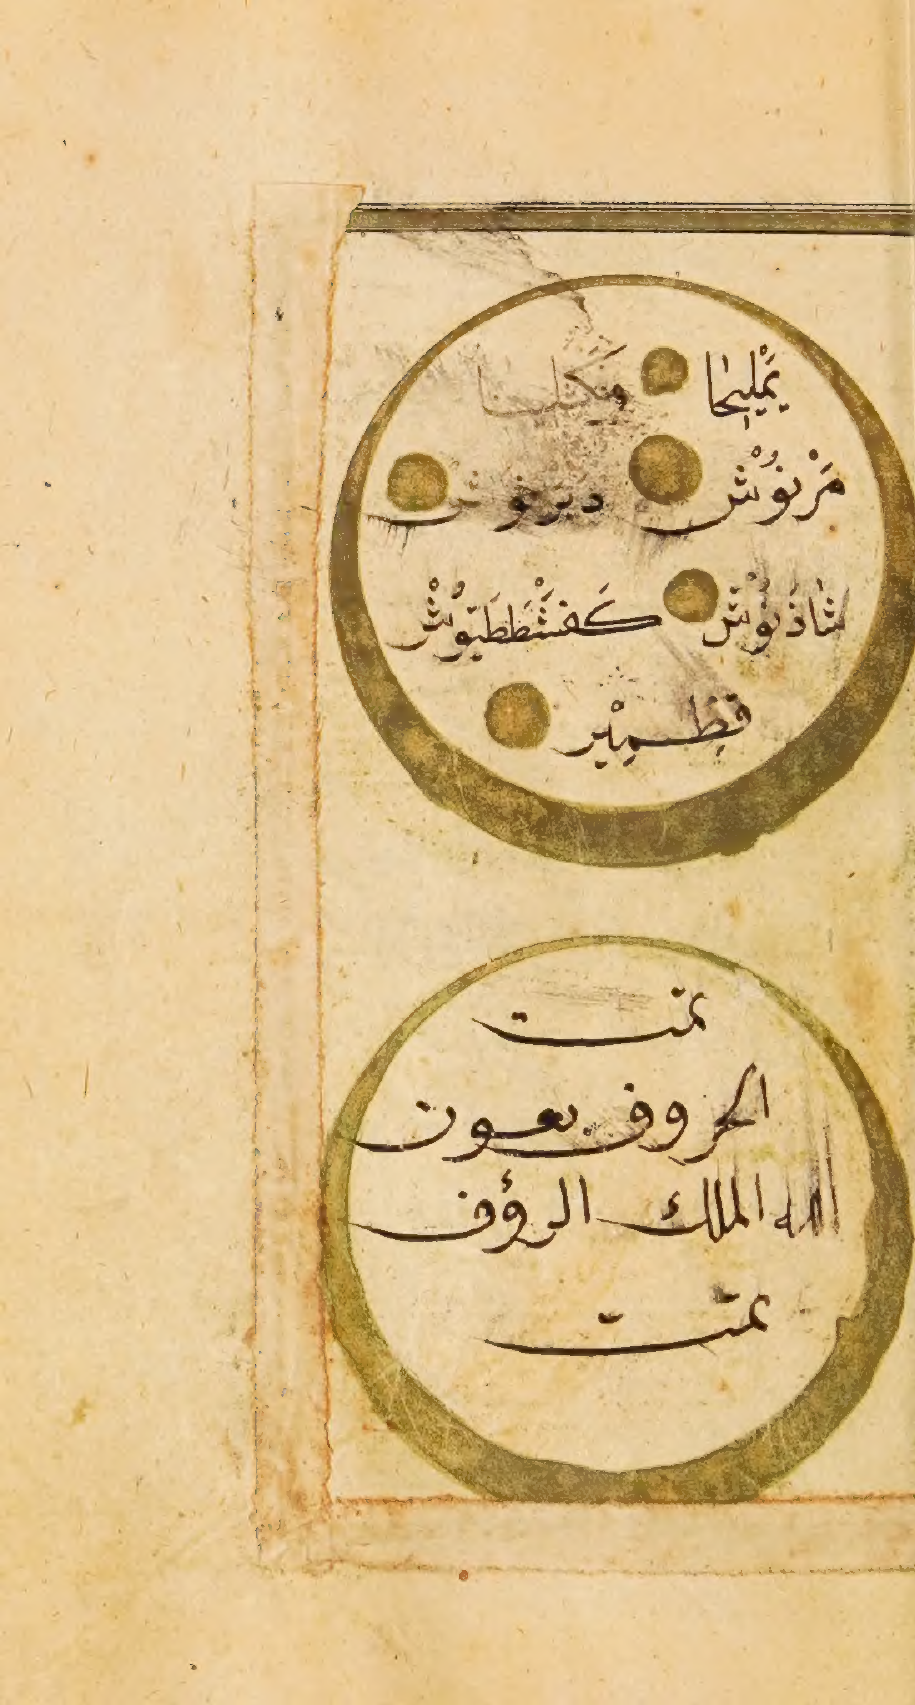 يَمْلِيخَا مَكْثَلِينَا
مَرْنُوشْ دبرنوش
شَاذَنُوشْ كَفَشْطَطَيُوشْ
قِطْمِيْر
تمت
الحروف بعون
الله الملك الرؤف
تمت